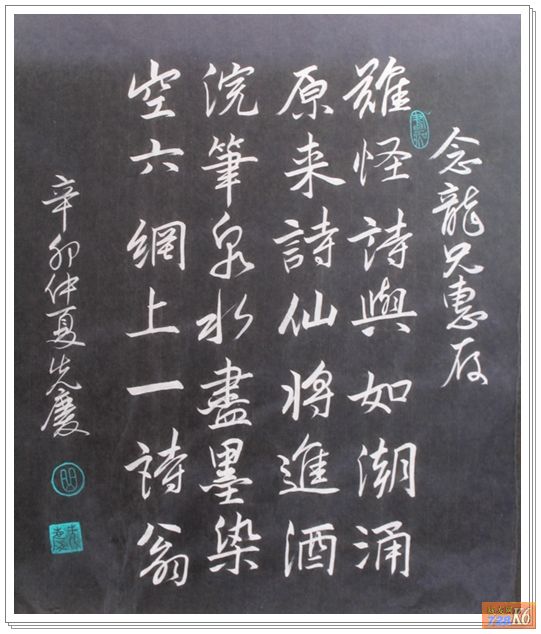 念龍兄惠存
難怪詩與如潮涌
原来詩仙將進酒
浣筆泉水盡墨染
空六網上一詩翁
辛卯仲夏先慶
728K6